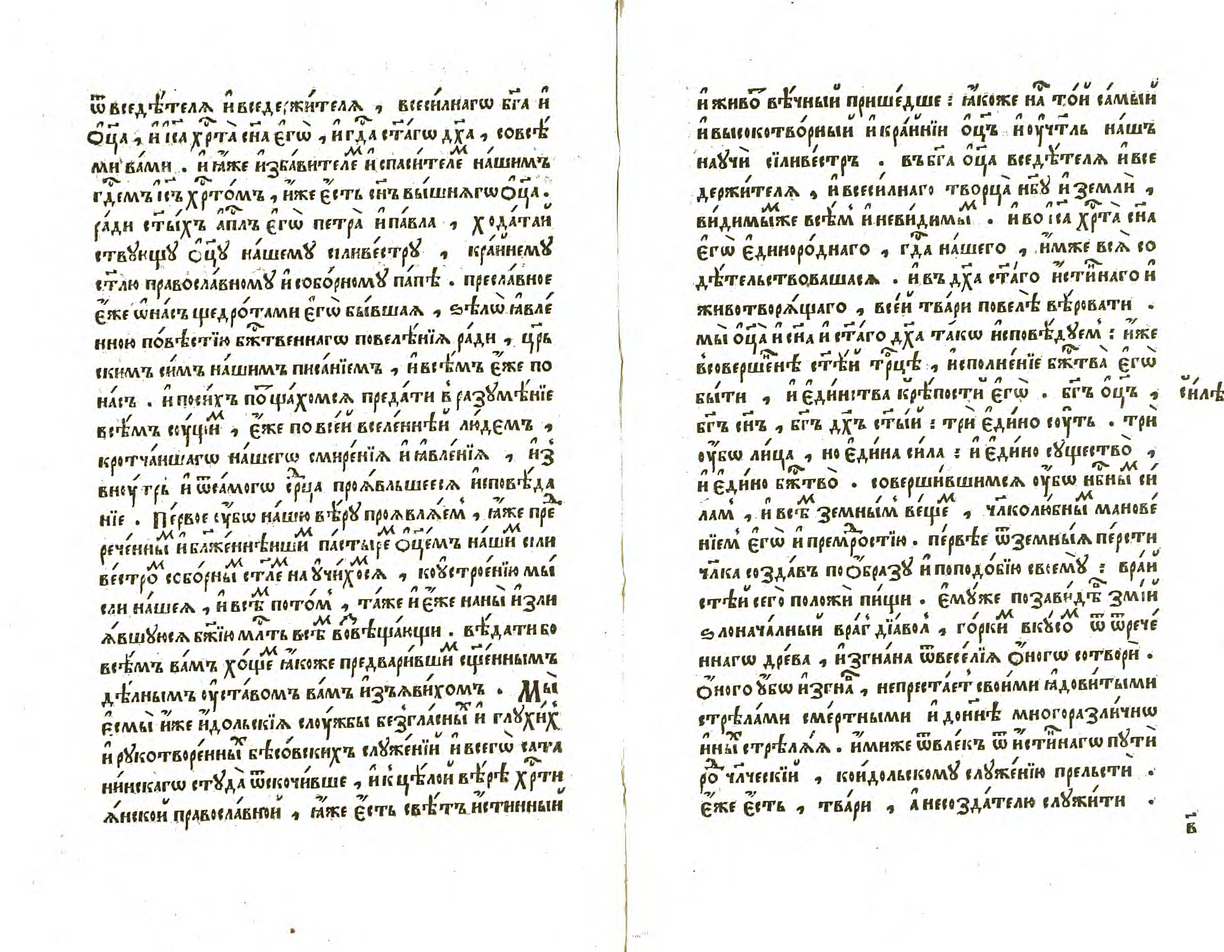 ѿ вседѣ́телѧ и҆ вседержи́телѧ , всеси́лнагѡ бг҃а и҆
ѻ҆ц҃а̀ , и҆ і҆с҃а хрⷭ҇та̀ сн҃а є҆гѡ̀ , и҆ гдⷭ҇а ст҃а́гѡ дх҃а , со всѣ́
ми ва́ми . и҆ ꙗ҆́же и҆зба́вителеⷨ и҆ спаси́телеⷨ на́шимъ
гдⷭ҇емъ і҆с҃ъ хрⷭ҇то́мъ , и҆́же є҆́сть сн҃ъ вы́шнѧгѡ ѻ҆ц҃а̀ .
ра́ди ст҃ы́хъ а҆пⷭ҇лъ є҆гѡ̀ петра̀ и҆ па́вла , хода́тай
ствꙋющꙋ ѻ҆ц҃ꙋ̀ на́шемꙋ силиве́стрꙋ , кра́йнемꙋ
ст҃лю правосла́вномꙋ и҆ собо́рномꙋ па́пѣ . пресла́вное
є҆́же ѡ҆ на́съ щедро́тами є҆гѡ̀ бы́вшаѧ , ѕѣлѡ̀ ꙗ҆вле́
нною по́вѣстїю бж҃твеннагѡ повелѣ́нїѧ ра́ди , цр҃ь
скимъ си́мъ на́шимъ писа́нїемъ , и҆ всѣ́мъ є҆́же по
на́съ . и҆ по си́хъ потща́хомсѧ преда́ти в̾ разꙋмѣ́нїе
всѣ́мъ сꙋ́щиⷨ , є҆́же по все́й вселе́ннѣй лю́демъ ,
кротча́йшагѡ на́шегѡ смире́нїѧ и҆ ꙗ҆вле́нїѧ , и҆з̾
внꙋ́трь и҆ ѿ са́могѡ срⷣца проѧ́вльшеесѧ и҆сповѣ́да
нїе . Пе́рвое ᲂу҆́бѡ на́шꙋ вѣ́рꙋ проѧвлѧ́ем̾ , ꙗ҆́же преⷣ
рече́нныⷨ и҆ бл҃же́ннѣйшиⷨ па́стыре ѻ҆ц҃е́мъ на́шиⷨ сили
ве́строⷨ собо́рныⷨ ст҃ле научи́хосѧ , ко ᲂу҆строе́нїю мы́
сли на́шеѧ , и҆ всѣⷨ пото́м̾ , та́же и҆ є҆́же на ны̀ и҆зли
ѧ́вшꙋюсѧ бж҃їю млⷭ҇ть всѣⷨ возвѣща́ющи . вѣ́дати бо
всѣ́мъ ва́мъ хо́щеⷨ ꙗ҆́коже предвари́вшиⷨ сщ҃е́ннымъ
дѣ́лнымъ ᲂу҆ста́вомъ ва́мъ и҆зъѧви́хомъ . Мы̀
є҆смы̀ и҆́же и҆́дольскїѧ слꙋ́жбы безгла́сныⷯ и҆ глꙋхи́хⷯ
и҆ рꙋкотворе́нныⷯ бѣсо́вскихъ слꙋже́нїй и҆ всегѡ̀ сата
ни́нскагѡ стꙋда̀ ѿскочи́вше , и҆ к̾ цѣ́лой вѣ́рѣ хрⷭ҇ти
ѧ́нской правосла́вной , ꙗ҆́же є҆́сть свѣ́тъ и҆́стинный
и҆ живо́тⷮ вѣ́чный прише́дше : ꙗ҆́коже наⷭ҇ то́й са́мый
и҆ высокотво́рный и҆ кра́йнїй ѻ҆ц҃ъ и҆ ᲂу҆чт҃ль на́шъ
научѝ силиве́стръ . въ бг҃а ѻ҆ц҃а̀ вседѣ́телѧ и҆ все
держи́телѧ , и҆ всеси́лнаго творца̀ нб҃ꙋ и҆ землѝ ,
ви́димыⷨже всѣ́м̾ и҆ неви́димыⷨ . и҆ во і҆с҃а хрⷭ҇та̀ сн҃а
є҆гѡ̀ є҆диноро́днаго , гдⷭ҇а на́шего , и҆́мже всѧ̀ со
дѣ́тельствовашасѧ . и҆ въ дх҃а ст҃а́го и҆́стиннаго и҆
животворѧ́щаго , все́й тва́ри повелѣ̀ вѣ́ровати .
мы̀ ѻ҆ц҃а̀ и҆ сн҃а и҆ ст҃а́го дх҃а та́кѡ и҆сповѣ́дꙋем̾ : и҆́же
в̾ соверше́нѣ ст҃ѣ́й трⷪ҇цѣ , и҆сполне́нїе бж҃тва̀ є҆гѡ̀
бы́ти , и҆ є҆ди́нства крѣ́пости є҆гѡ̀ . бг҃ъ ѻ҆ц҃ъ ,
бг҃ъ сн҃ъ , бг҃ъ дх҃ъ ст҃ы́й : трѝ є҆ди́но сꙋ́ть . трѝ
ᲂу҆́бѡ лица̀ , но є҆ди́на си́ла : и҆ є҆ди́но сꙋщество̀ ,
и҆ є҆ди́но бж҃тво̀ . соверши́вшимсѧ ᲂу҆́бѡ нбⷭ҇ныⷨ си́
лам̾ , и҆ всѣⷨ земны́м̾ ве́щеⷨ , чл҃колю́бныⷨ манове́
нїем̾ є҆гѡ̀ и҆ премрⷣостїю . пе́рвѣе ѿ земны́ѧ пе́рсти
чл҃ка созда́въ по ѻ҆́бразꙋ и҆ по подо́бїю своемꙋ̀ : в̾ ра́й
стѣ́й сего̀ положѝ пи́щи . є҆мꙋ́же позави́дѣⷡ змі́й
ѕлонача́лный вра́г̾ дїа́вол̾ , го́ркиⷨ вкꙋ́соⷨ ѿ ѿрече́
ннаго дре́ва , и҆згна́на ѿ весе́лїѧ ѻ҆́ного сотворѝ .
ѻ҆́ного ᲂу҆́бѡ и҆згна́в̾ , не преста́ет̾ свои́ми ꙗ҆дови́тыми
стрѣла́ми сме́ртными и҆ до ны́нѣ многоразли́чнѡ
и҆ны́ⷯ стрѣлѧ́ѧ . и҆́миже ѿвле́къ ѿ и҆́стиннаго пꙋтѝ
роⷣ чл҃ческїй , ко и҆́дольскомꙋ слꙋже́нїю прельстѝ .
є҆́же є҆́сть , тва́ри , а҆ не созда́телю слꙋжи́ти .
си́лѣ
в҃